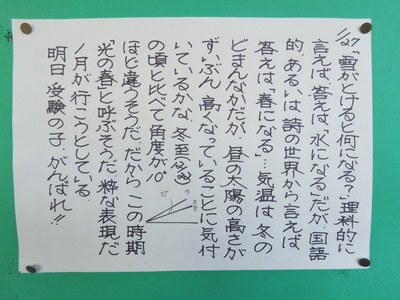 1/27「雪がとけると何になる?」理科的に
言えば、答えは「水になる」だが、国語
的、あるいは、詩の世界から言えば、
答えは「春になる」…気温は、冬の
どまんなかだが、昼の太陽の高さが
ずいぶん高くなっていることに気付
いているかな。冬至(12/22)
の頃と比べて角度が10°
ほど違うそうだ。だから、この時期
「光の春」と呼ぶそうだ。粋な表現だ
1月が行こうとしている。
明日、受験の子、がんばれ!!